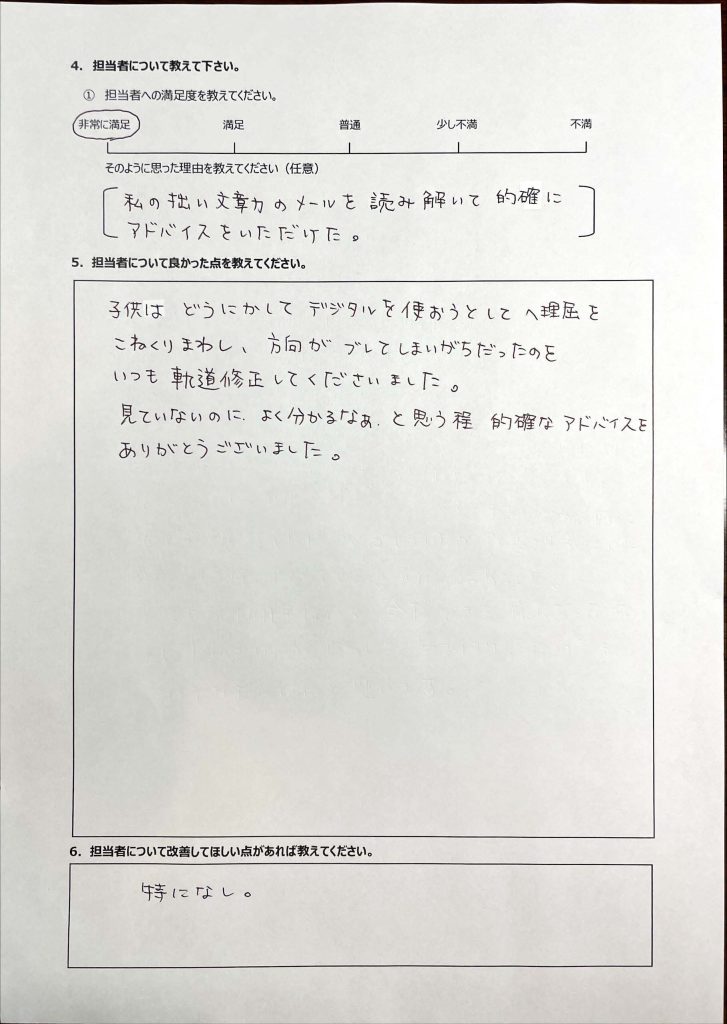 4. 担当者について教えて下さい。
① 担当者への満足度を教えてください。
非常に満足 満足 普通 少し不満 不満
そのように思った理由を教えてください（任意）
私の拙い文章力のメールを読み解いて 的確に
アドバイスをいただけた。
5. 担当者について良かった点を教えてください。
子供は どうにかして デジタルを使おうとして へ理屈を
こねくりまわし、方向が ブレてしまいがちだったのを
いつも 軌道修正してくださいました。
見ていないのに、よく分かるなぁ、と思う程 的確なアドバイスを
ありがとうございました。
6. 担当者について改善してほしい点があれば教えてください。
特になし。